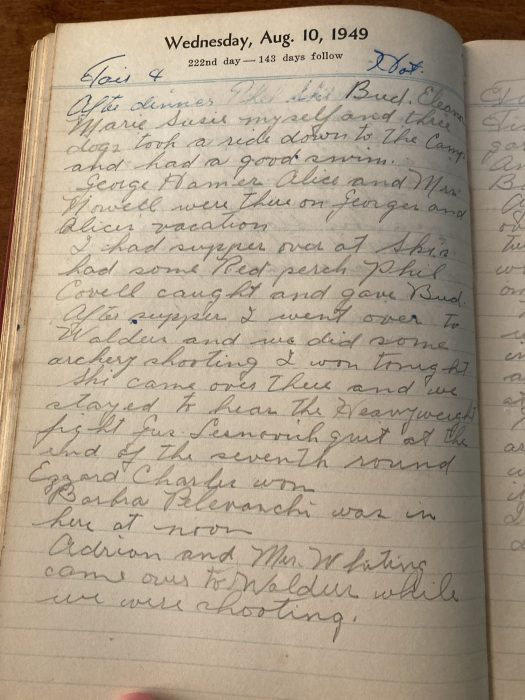 Wednesday, Aug. 10, 1949
222nd day — 143 days follow
Fair & Hot.
After dinner Phil Ski Bud. Eleanor
Marie Susie myself and three
dogs took a ride down to the Camp
and had a good swim.
George Hamer Alice and Mrs
Nowell were there on Georges and
Alices vacation
I had supper over at Skis
had some Red perch Phil
Covell caught and gave Bud.
After supper I went over to
Waldus and we did some
archery shooting I won tonight
Ski came over there and we
stayed to hear the Heavyweight
fight Gus Lesnovich quit at the
end of the seventh round
Ezzard Charles won
Barbra was in
here at noon
Adrian and Mrs. Whiting
came over to Waldus while
we were shooting.